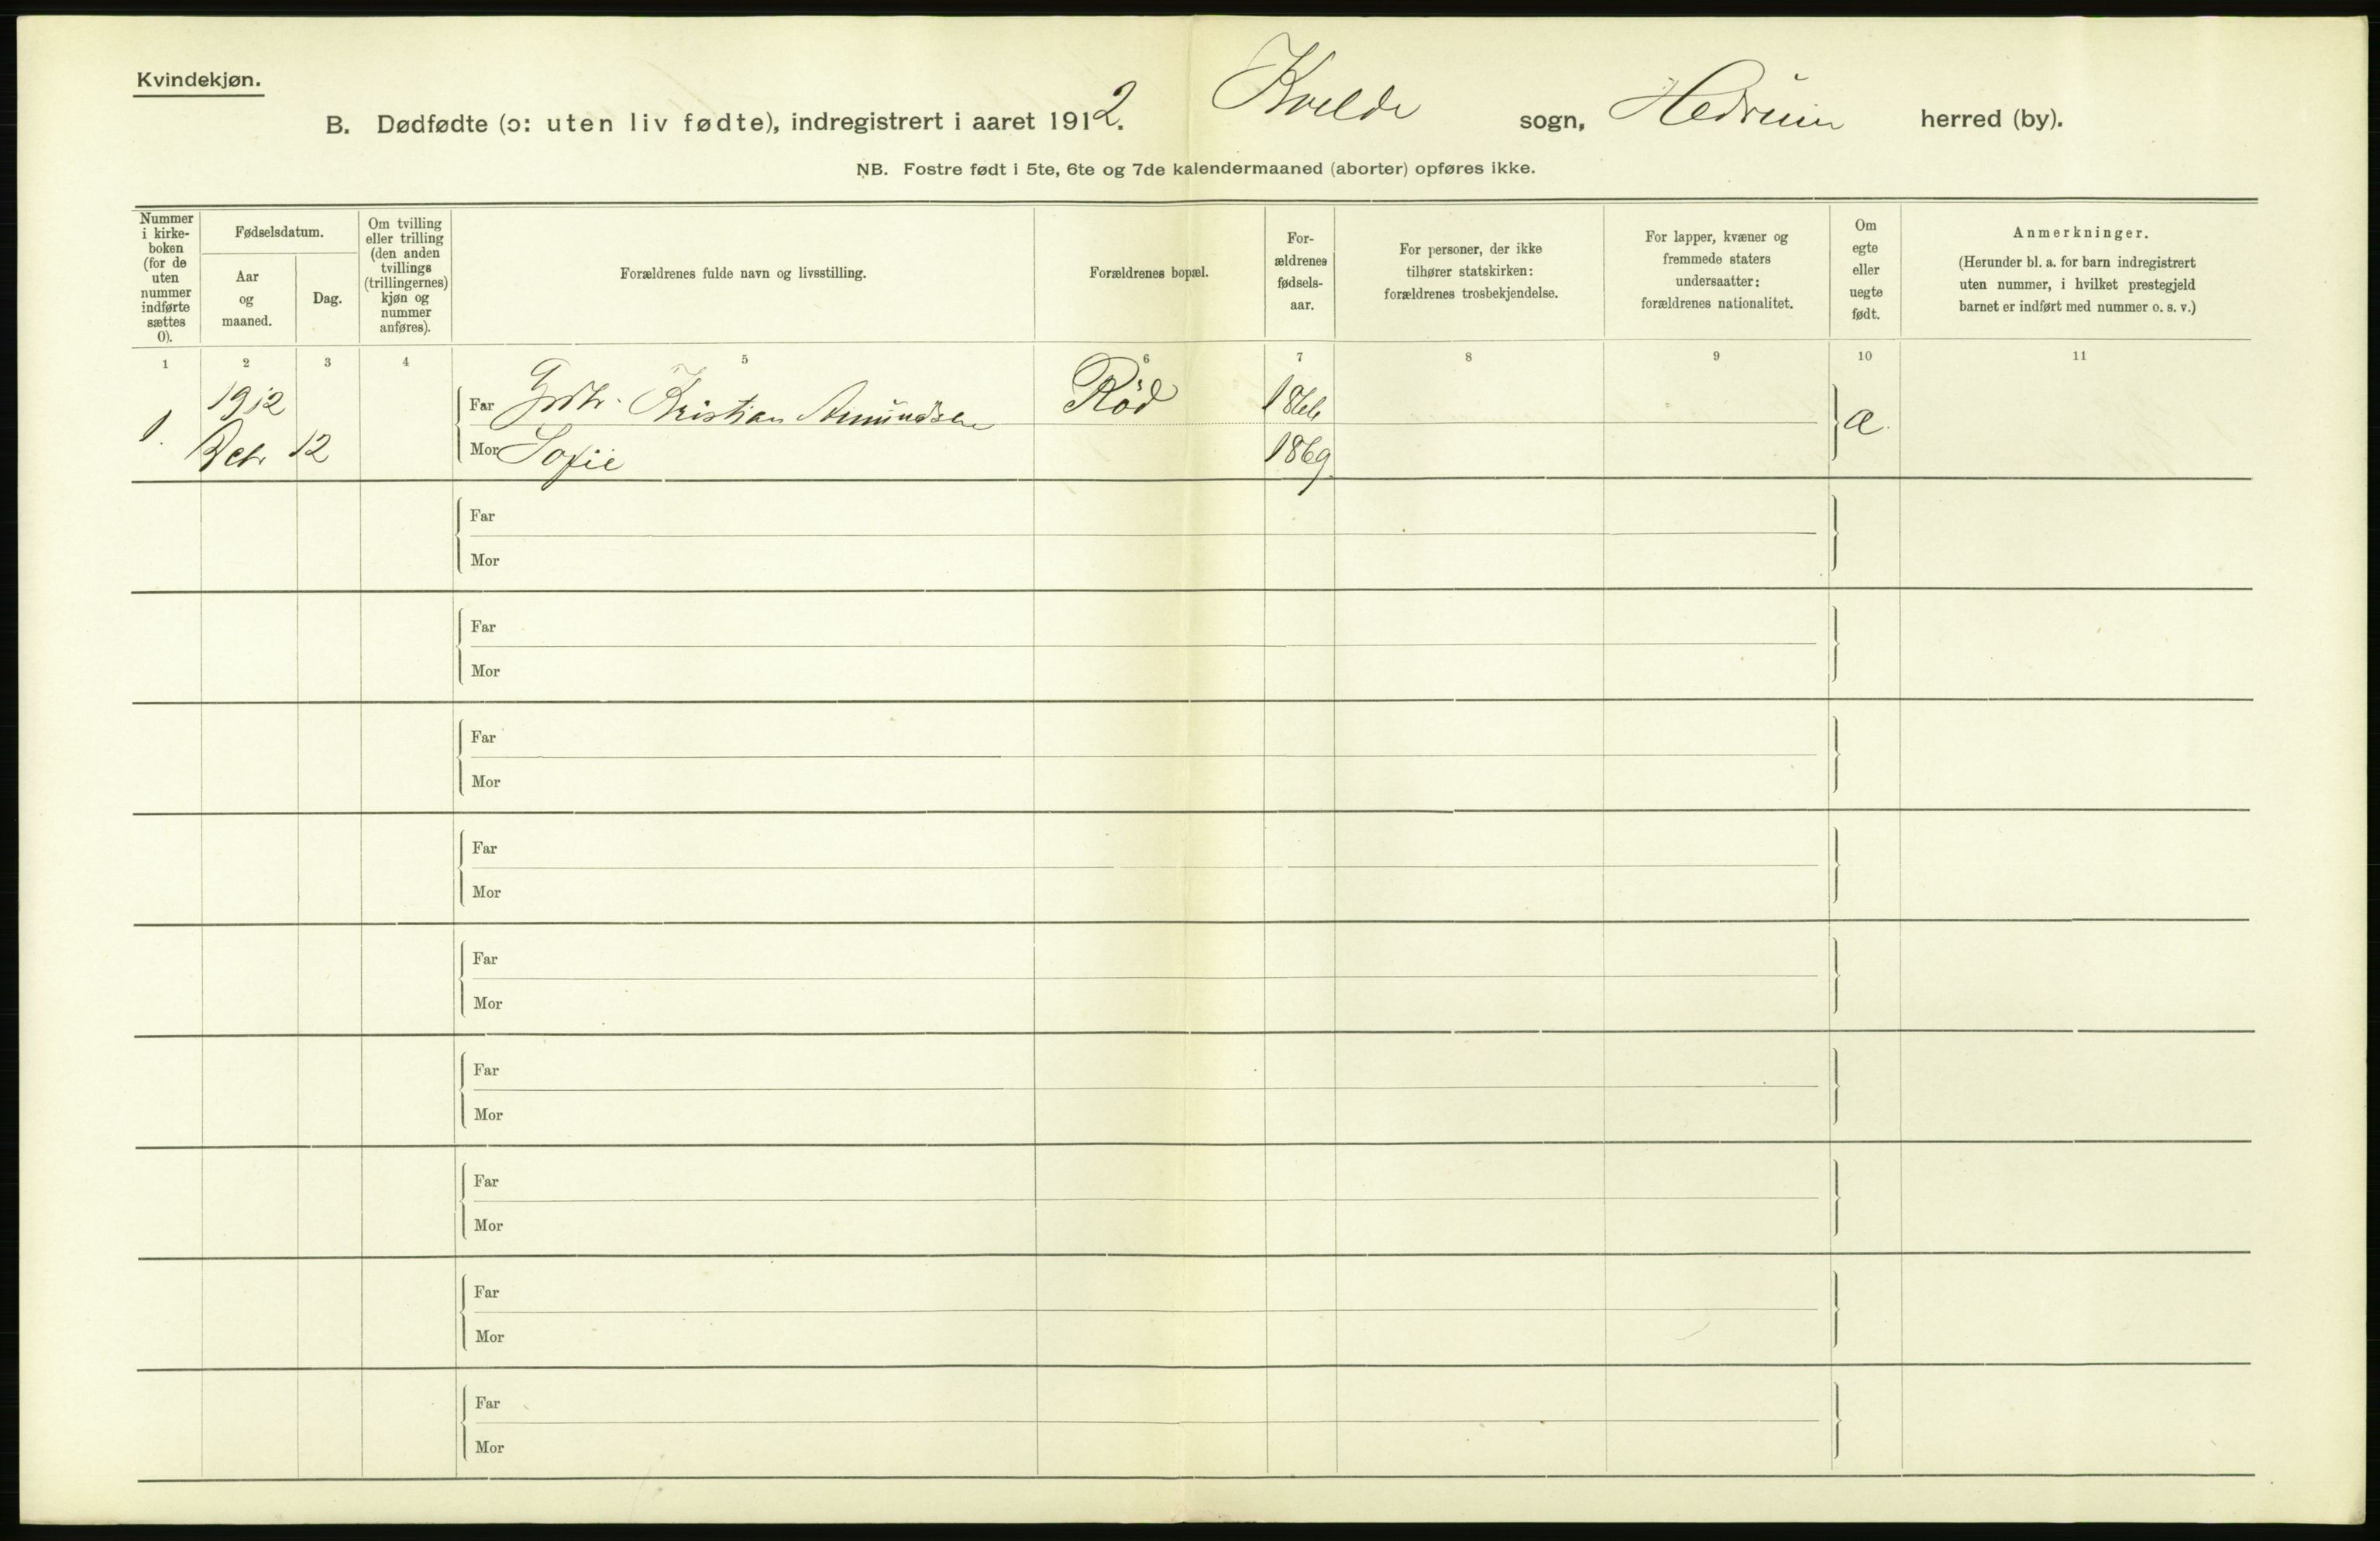 Kvindekjøn.
B. Dødfødte (ɔ: uten liv fødte), indregistrert i aaret 1912. Kvelde sogn, Hedrum herred (by).
NB. Fostre født i 5te, 6te og 7de kalendermaaned (aborter) opføres ikke.
Nummer
i kirke-
boken
(for de
uten
nummer
indførte
sættes
0).
Fødselsdatum.
Aar
og
maaned.
Dag.
Om tvilling
eller trilling
(den anden
tvillings
(trillingernes)
kjøn og
nummer
anføres).
Forældrenes fulde navn og livsstilling.
Forældrenes bopæl.
For-
ældrenes
fødsels-
aar.
For personer, der ikke
tilhører statskirken:
forældrenes trosbekjendelse.
For lapper, kvæner og
fremmede staters
undersaatter:
forældrenes nationalitet.
Om
egte
eller
uegte
født.
Anmerkninger.
(Herunder bl. a. for barn indregistrert
uten nummer, i hvilket prestegjeld
barnet er indført med nummer o. s. v.)
1 2 3 4 5 6 7 8 9 10 11
1. 1912
12
Far Kristian Amundsen Röd 1866 æ.
Mor Sofie 1869
Far
Mor
Far
Mor
Far
Mor
Far
Mor
Far
Mor
Far
Mor
Far
Mor
Far
Mor
Far
Mor